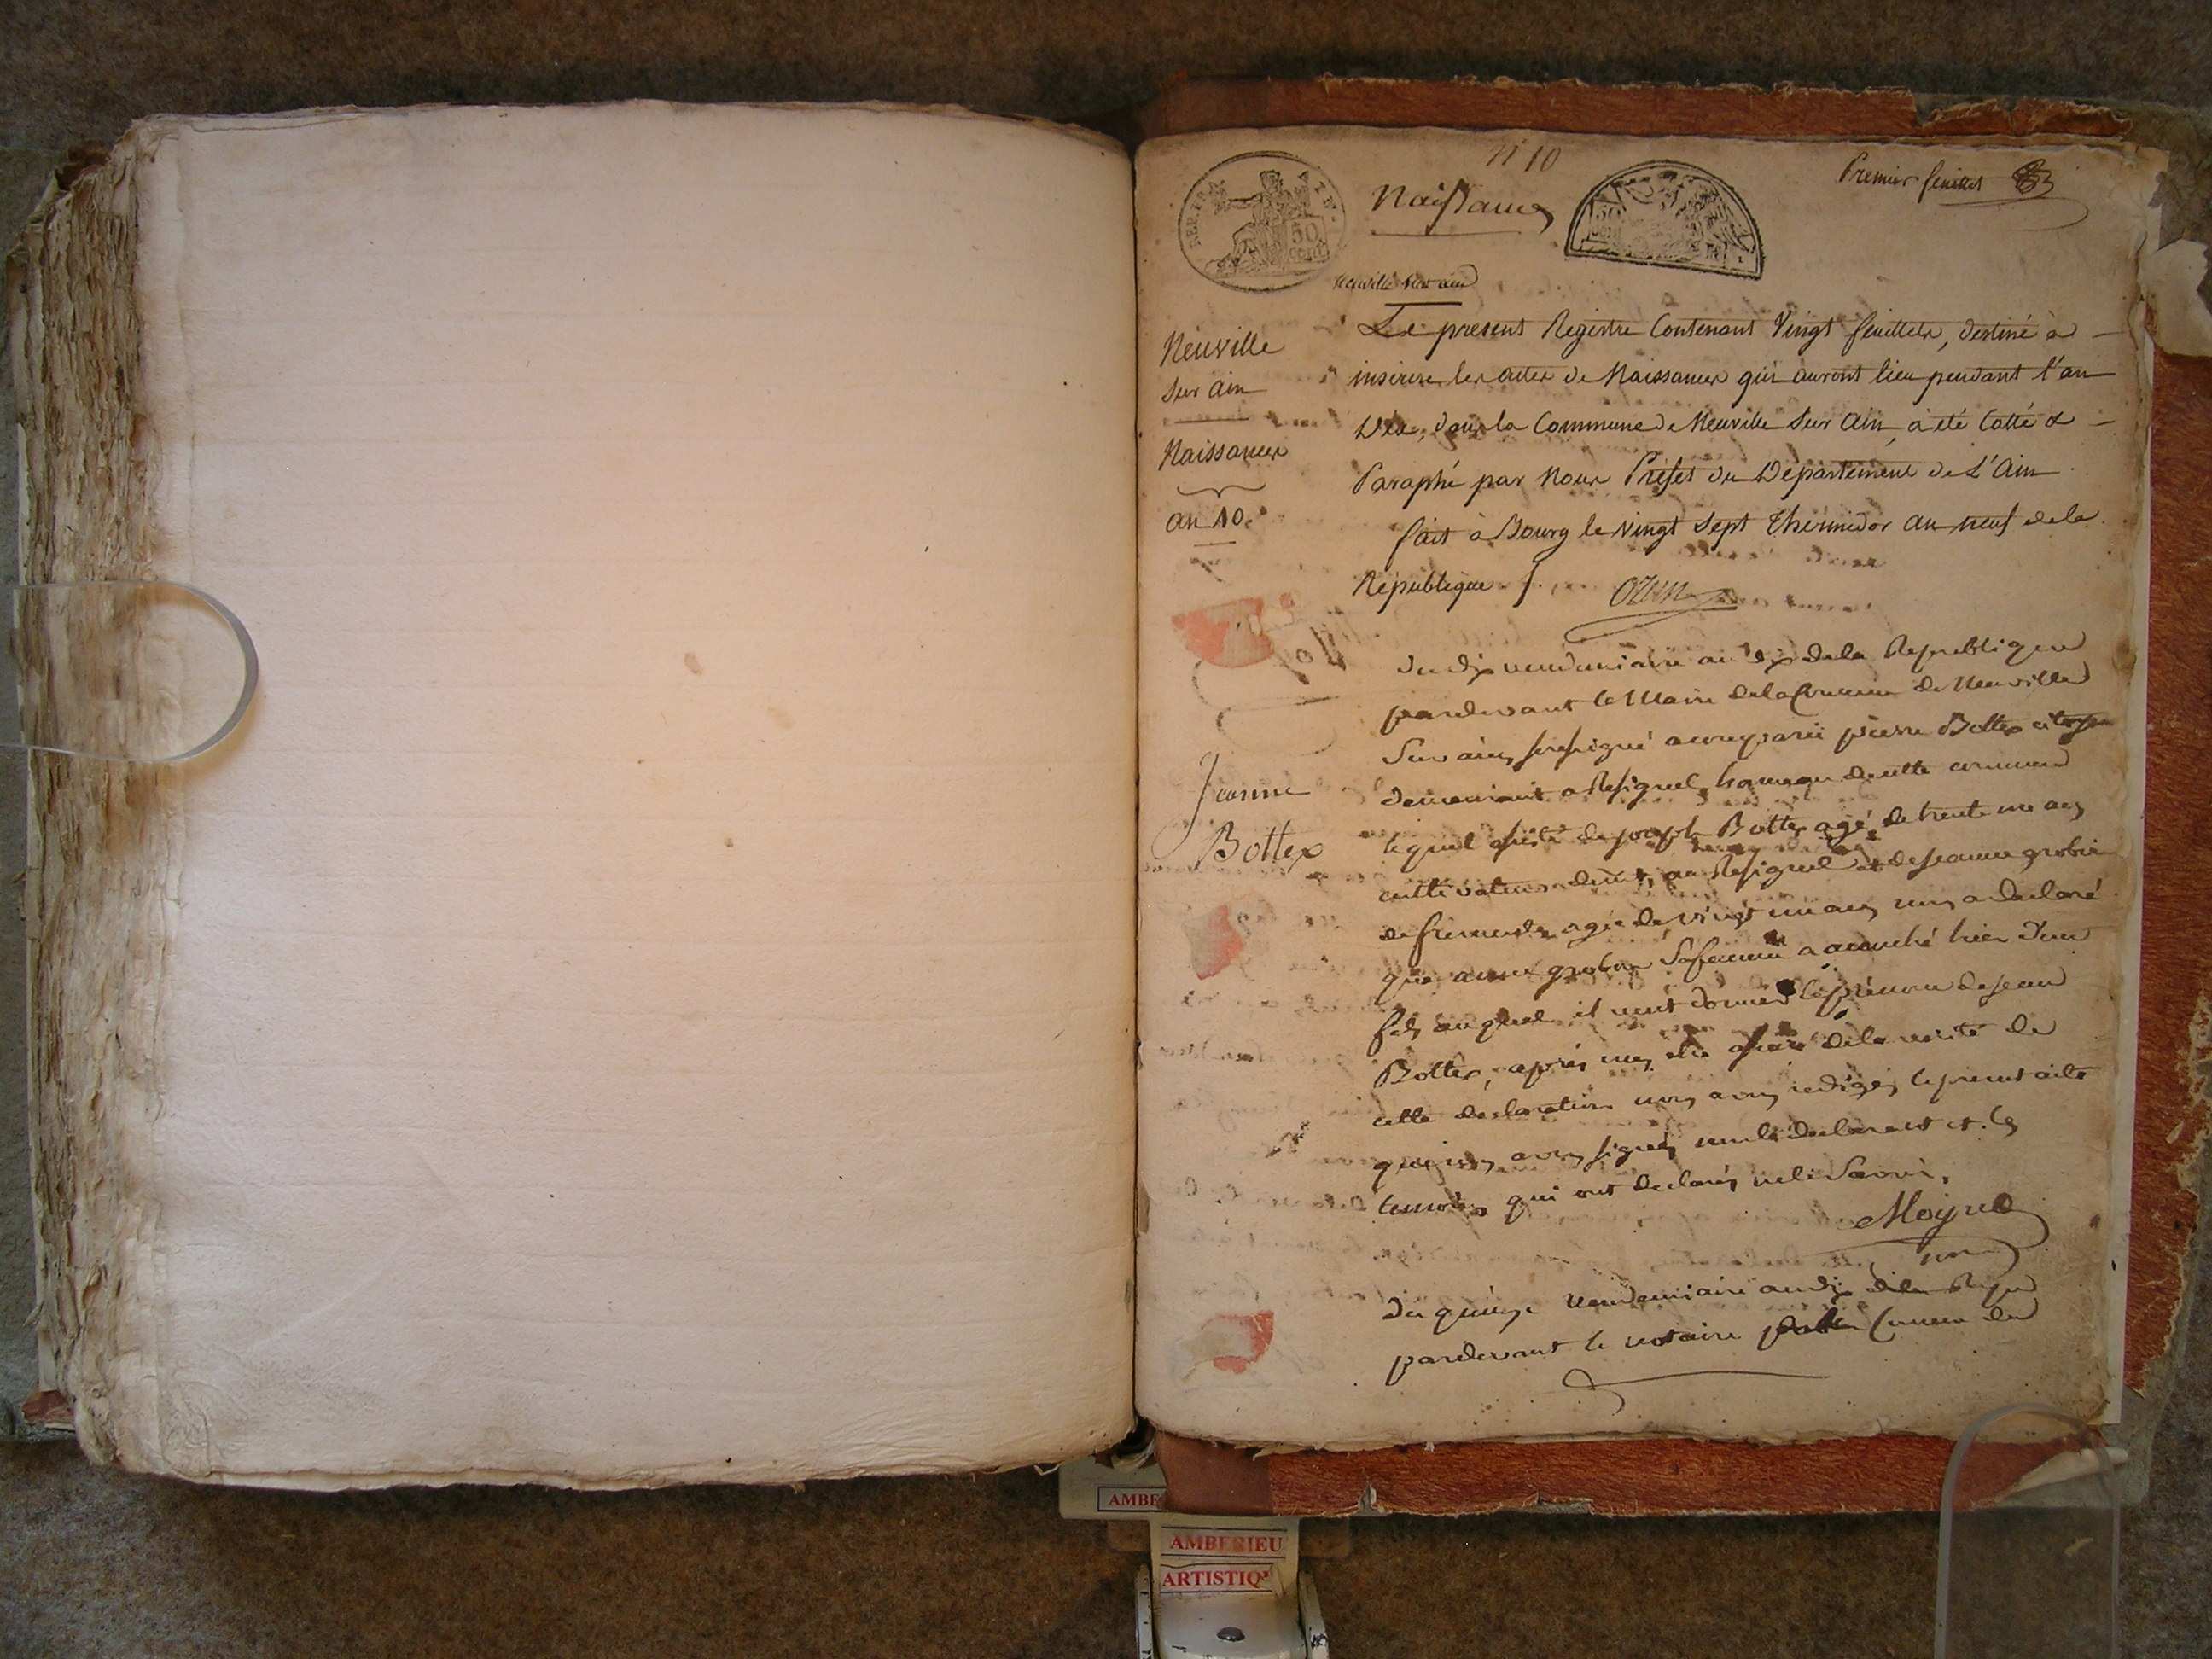 N° 10
Naissances
Premier feuillet
REP. FRA
50
cent
Neuville sur ain
Neuville
sur ain
Naissances
an 10.
Le present Registre Contenant Vingt feuillets, destiné à
inscrire les actes de Naissances qui auront lieu pendant l'an
Dix, dans la Commune de Neuville sur ain, a été Cotté &
Paraphé par Nous Préfet du Département de L'Ain
fait à Bourg le vingt sept Thermidor an neuf de la
République
Ozun
Jeanne
Bottex
du dix vendemiaire an dix de la Republique
pardevant le Maire de la Commune de Neuville
Sur ain soussigné a comparu pierre Bottex citoyen
demeurant a Resignel hameau de cette commune
lequel de joseph Bottex agé de trente un ans
cultivateur demt au Resignel et de jeanne
agée de vingt un ans nous a declaré
que anne sa femme a accouché hier d'un
fils auquel il veut donner le prenom de jean
Bottex, apres nous etre assuré de la verité de
cette declaration nous avons redigé le present acte
que nous avons signé non le declarant et les
temoins qui ont declarés ne le savoir.
Moyne
du quinze vendemiaire an dix de la Repu
pardevant le notaire
AMBE
AMBERIEU
ARTISTIQ